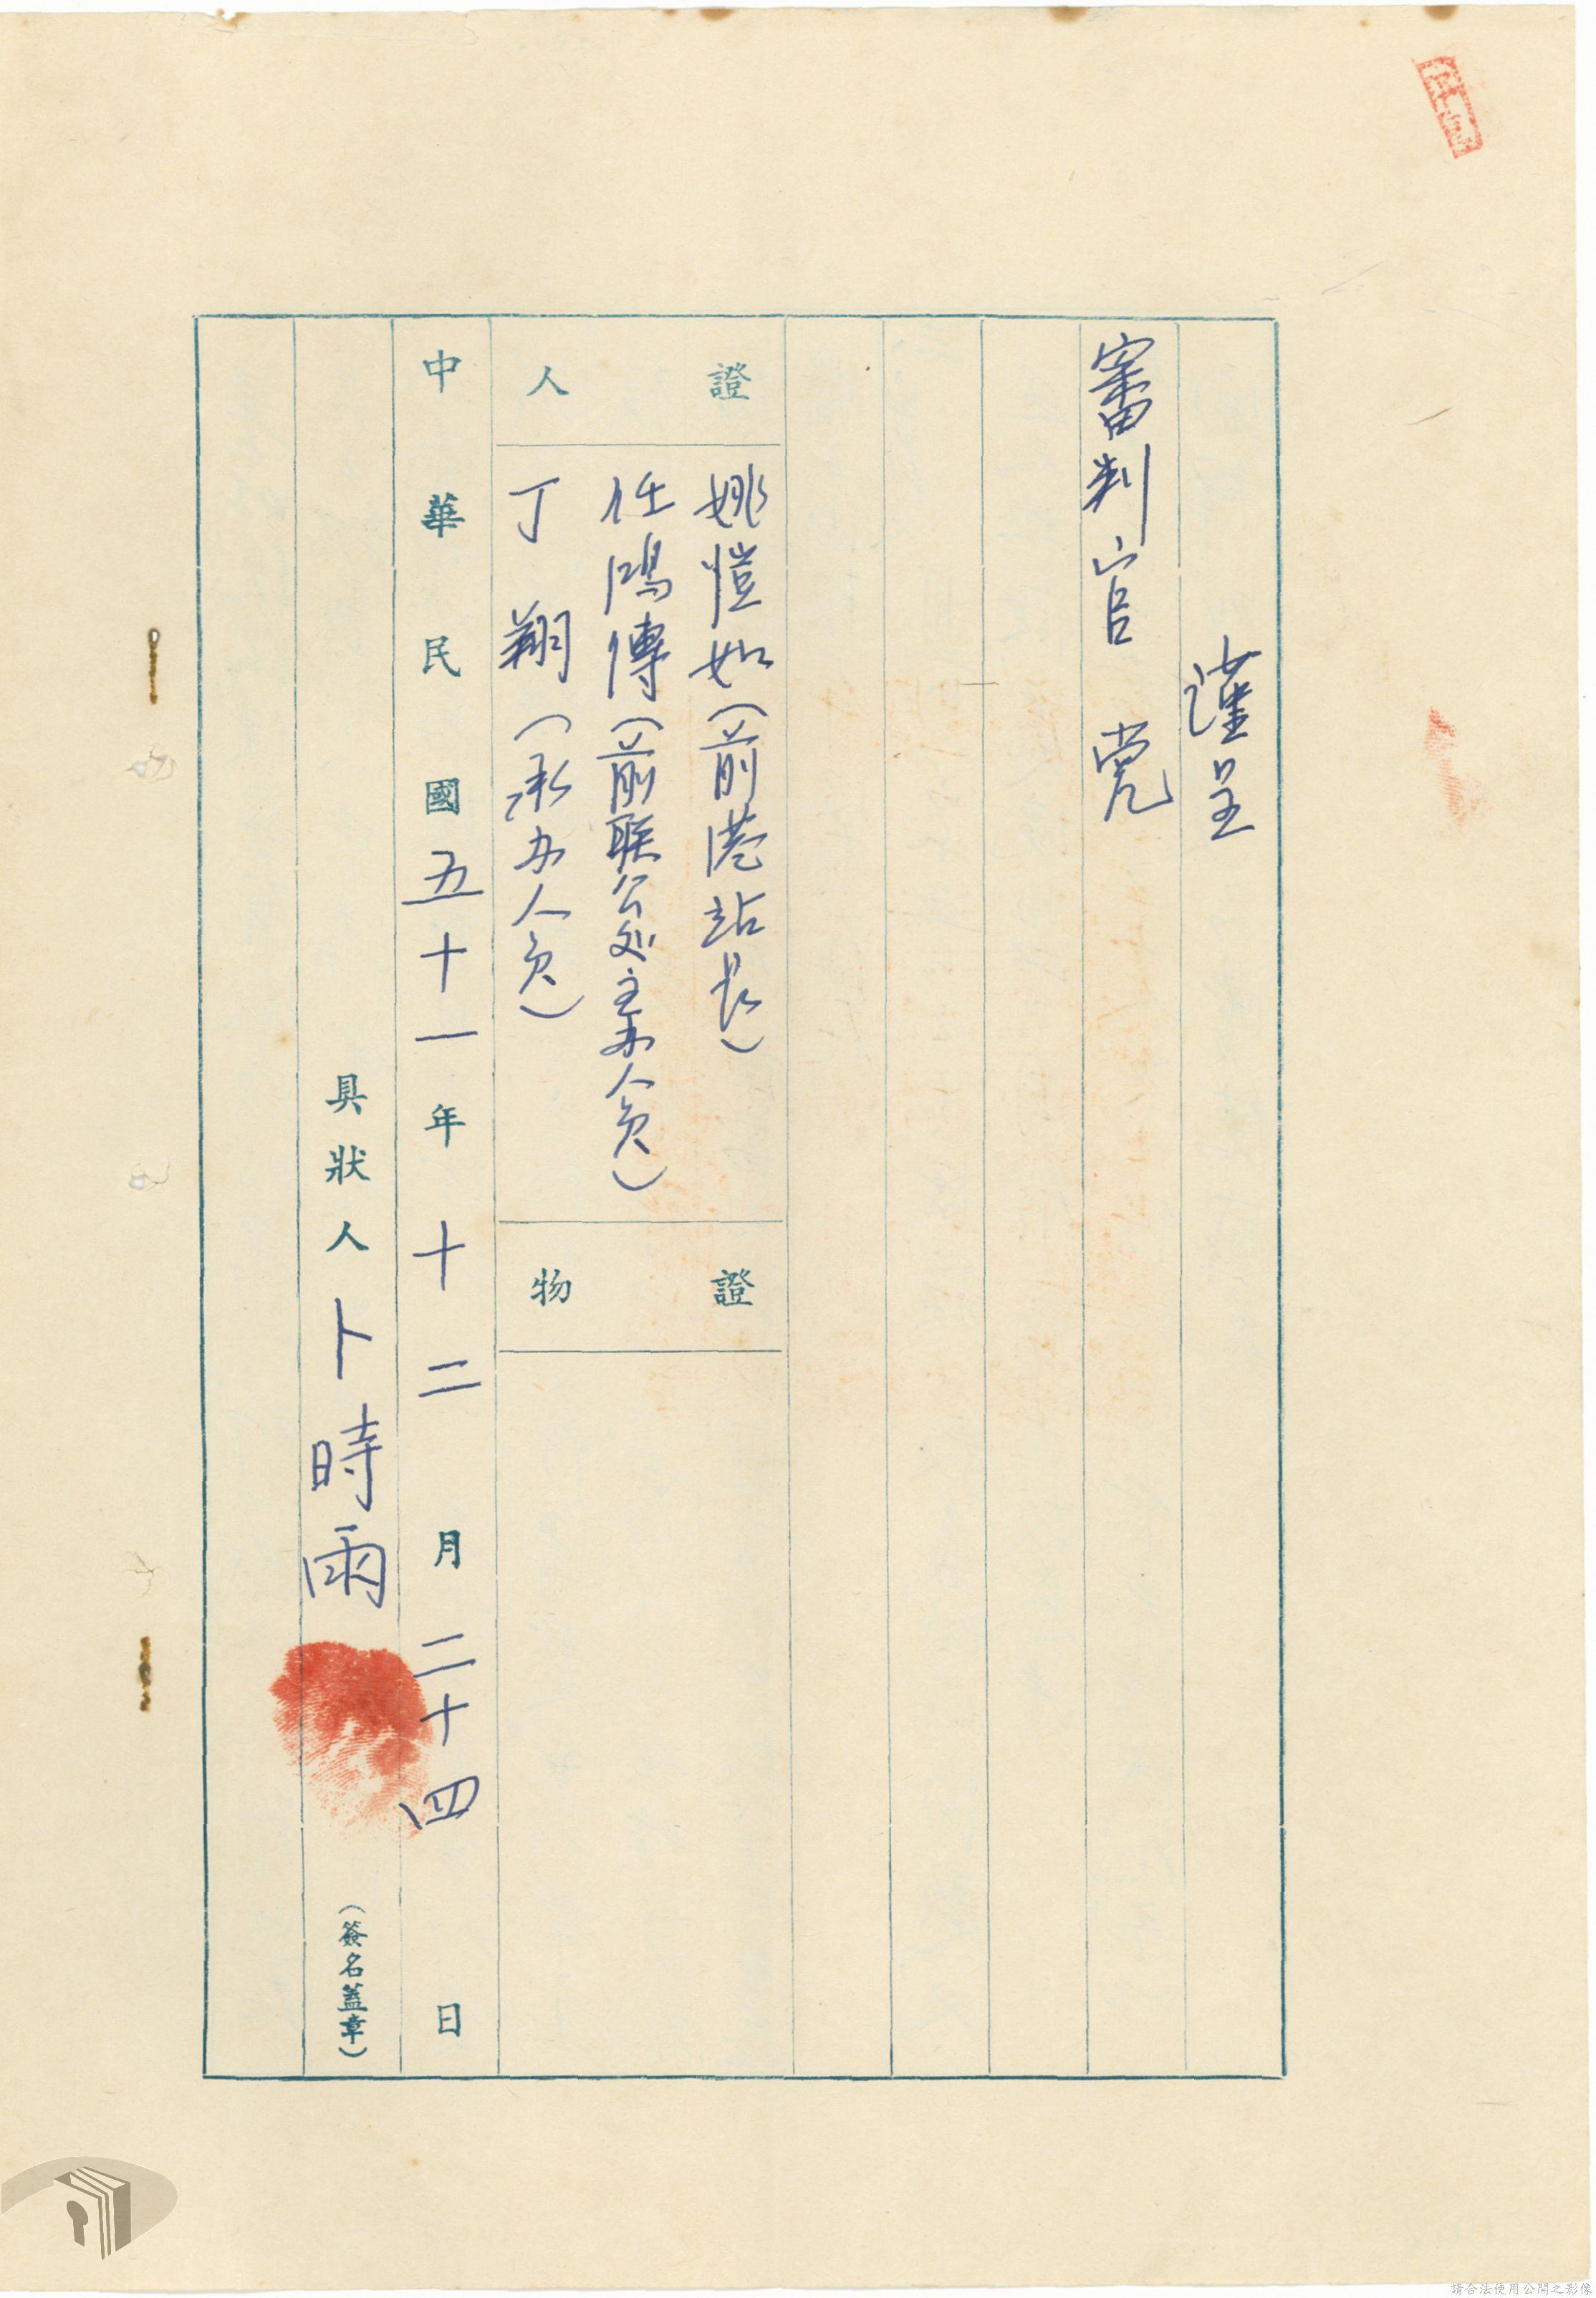 謹呈
審判官 党
證人
姚愷如(前港站長)
任鴻傳(前联公处主办人员)
丁翔(承办人员)
證物
中華民國五十一年十二月二十四日
具狀人卜時雨
(簽名蓋章)
請合法使用公開之影像